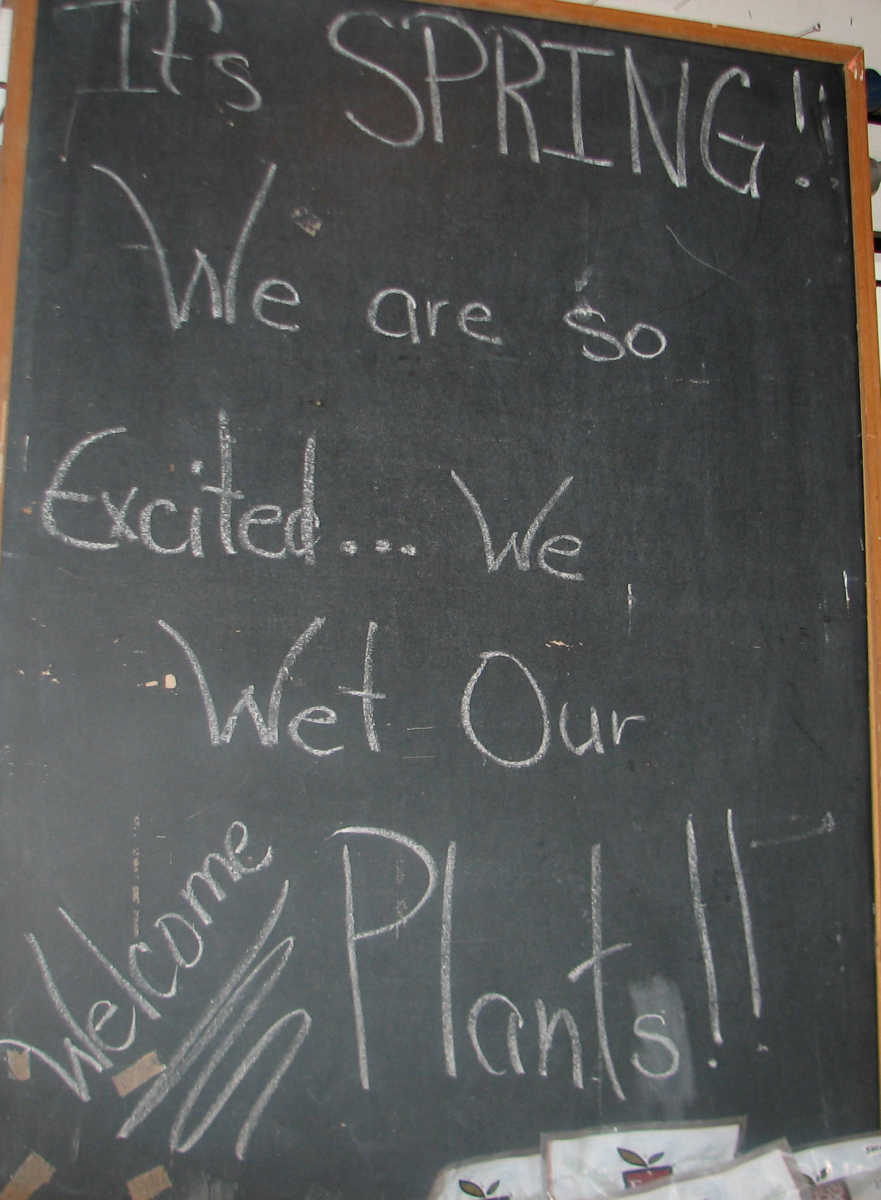 It's SPRING!!
We are so
Excited... We
Wet Our
Plants!!
Welcome